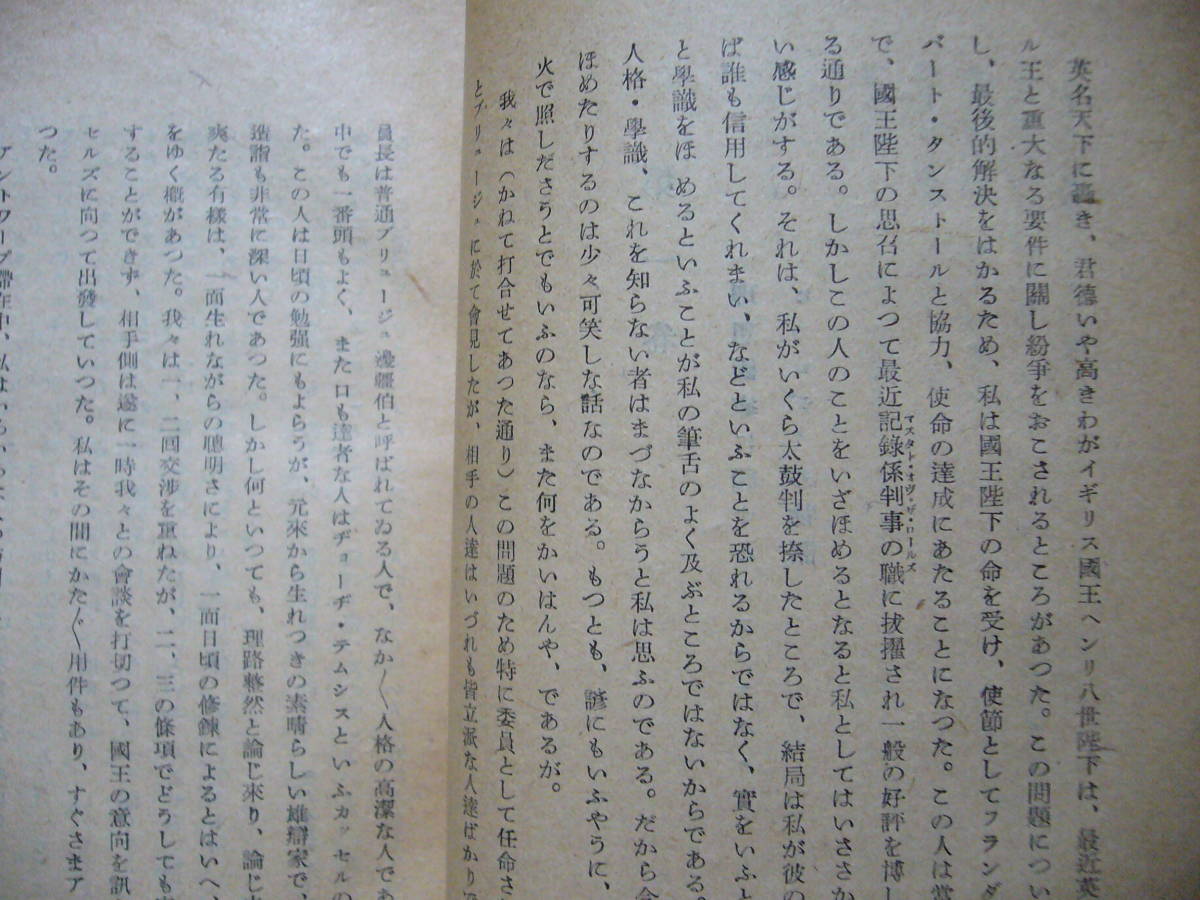 英名天下に轟き、君德いや高きわがイギリス國王ヘンリ八世陛下は、最近英
ル王と重大なる要件に關し紛爭をおこされるところがあつた。この問題につい
し、最後的解決をはかるため、私は國王陛下の命を受け、使節としてフランダ
バート・タンストールと協力、使命の達成にあたることになつた。この人は當
で、國王陛下の思召によつて最近記錄係判事の職に拔擢され一般の好評を博し
マスター・オヴ・ザ・ロールズ
る通りである。しかしこの人のことをいざほめるとなると私としてはいささか
い感じがする。それは、私がいくら太鼓判を捺したところで、結局は私が彼の
ば誰も信用してくれまい、などといふことを恐れるからではなく、實をいふと
と學識をほめるといふことが私の筆舌のよく及ぶところではないからである。
人格・學識、これを知らない者はまづなからうと私は思ふのである。だから今
ほめたりするのは少々可笑しな話なのである。もつとも、諺にもいふやうに、
火で照しださうとでもいふのなら、また何をかいはんや、であるが。
我々は（かねて打合せてあつた通り）この問題のため特に委員として任命さ
とブリュージュに於て會見したが、相手の人達はいづれも皆立派な人達ばかりで
員長は普通ブリュージュ邊疆伯と呼ばれてゐる人で、なか〱人格の高潔な人であ
中でも一番頭もよく、また口も達者な人はヂョーヂ・テムシスといふカッセルの
た。この人は日頃の勉強にもよらうが、元來から生れつきの素晴らしい雄辯家で、
造詣も非常に深い人であつた。しかし何といつても、理路整然と論じ來り、論じ
爽たる有樣は、一面生れながらの聰明さにより、一面日頃の修鍊によるとはいへ、
をゆく概があつた。我々は一、二囘交涉を重ねたが、二、三の條項でどうしても
することができず、相手側は遂に一時我々との會談を打切つて、國王の意向を訊
セルズに向つて出發していつた。私はその間にかた〲用件もあり、すぐさまア
つた。
アントワープ滯在中、私はいろいろ